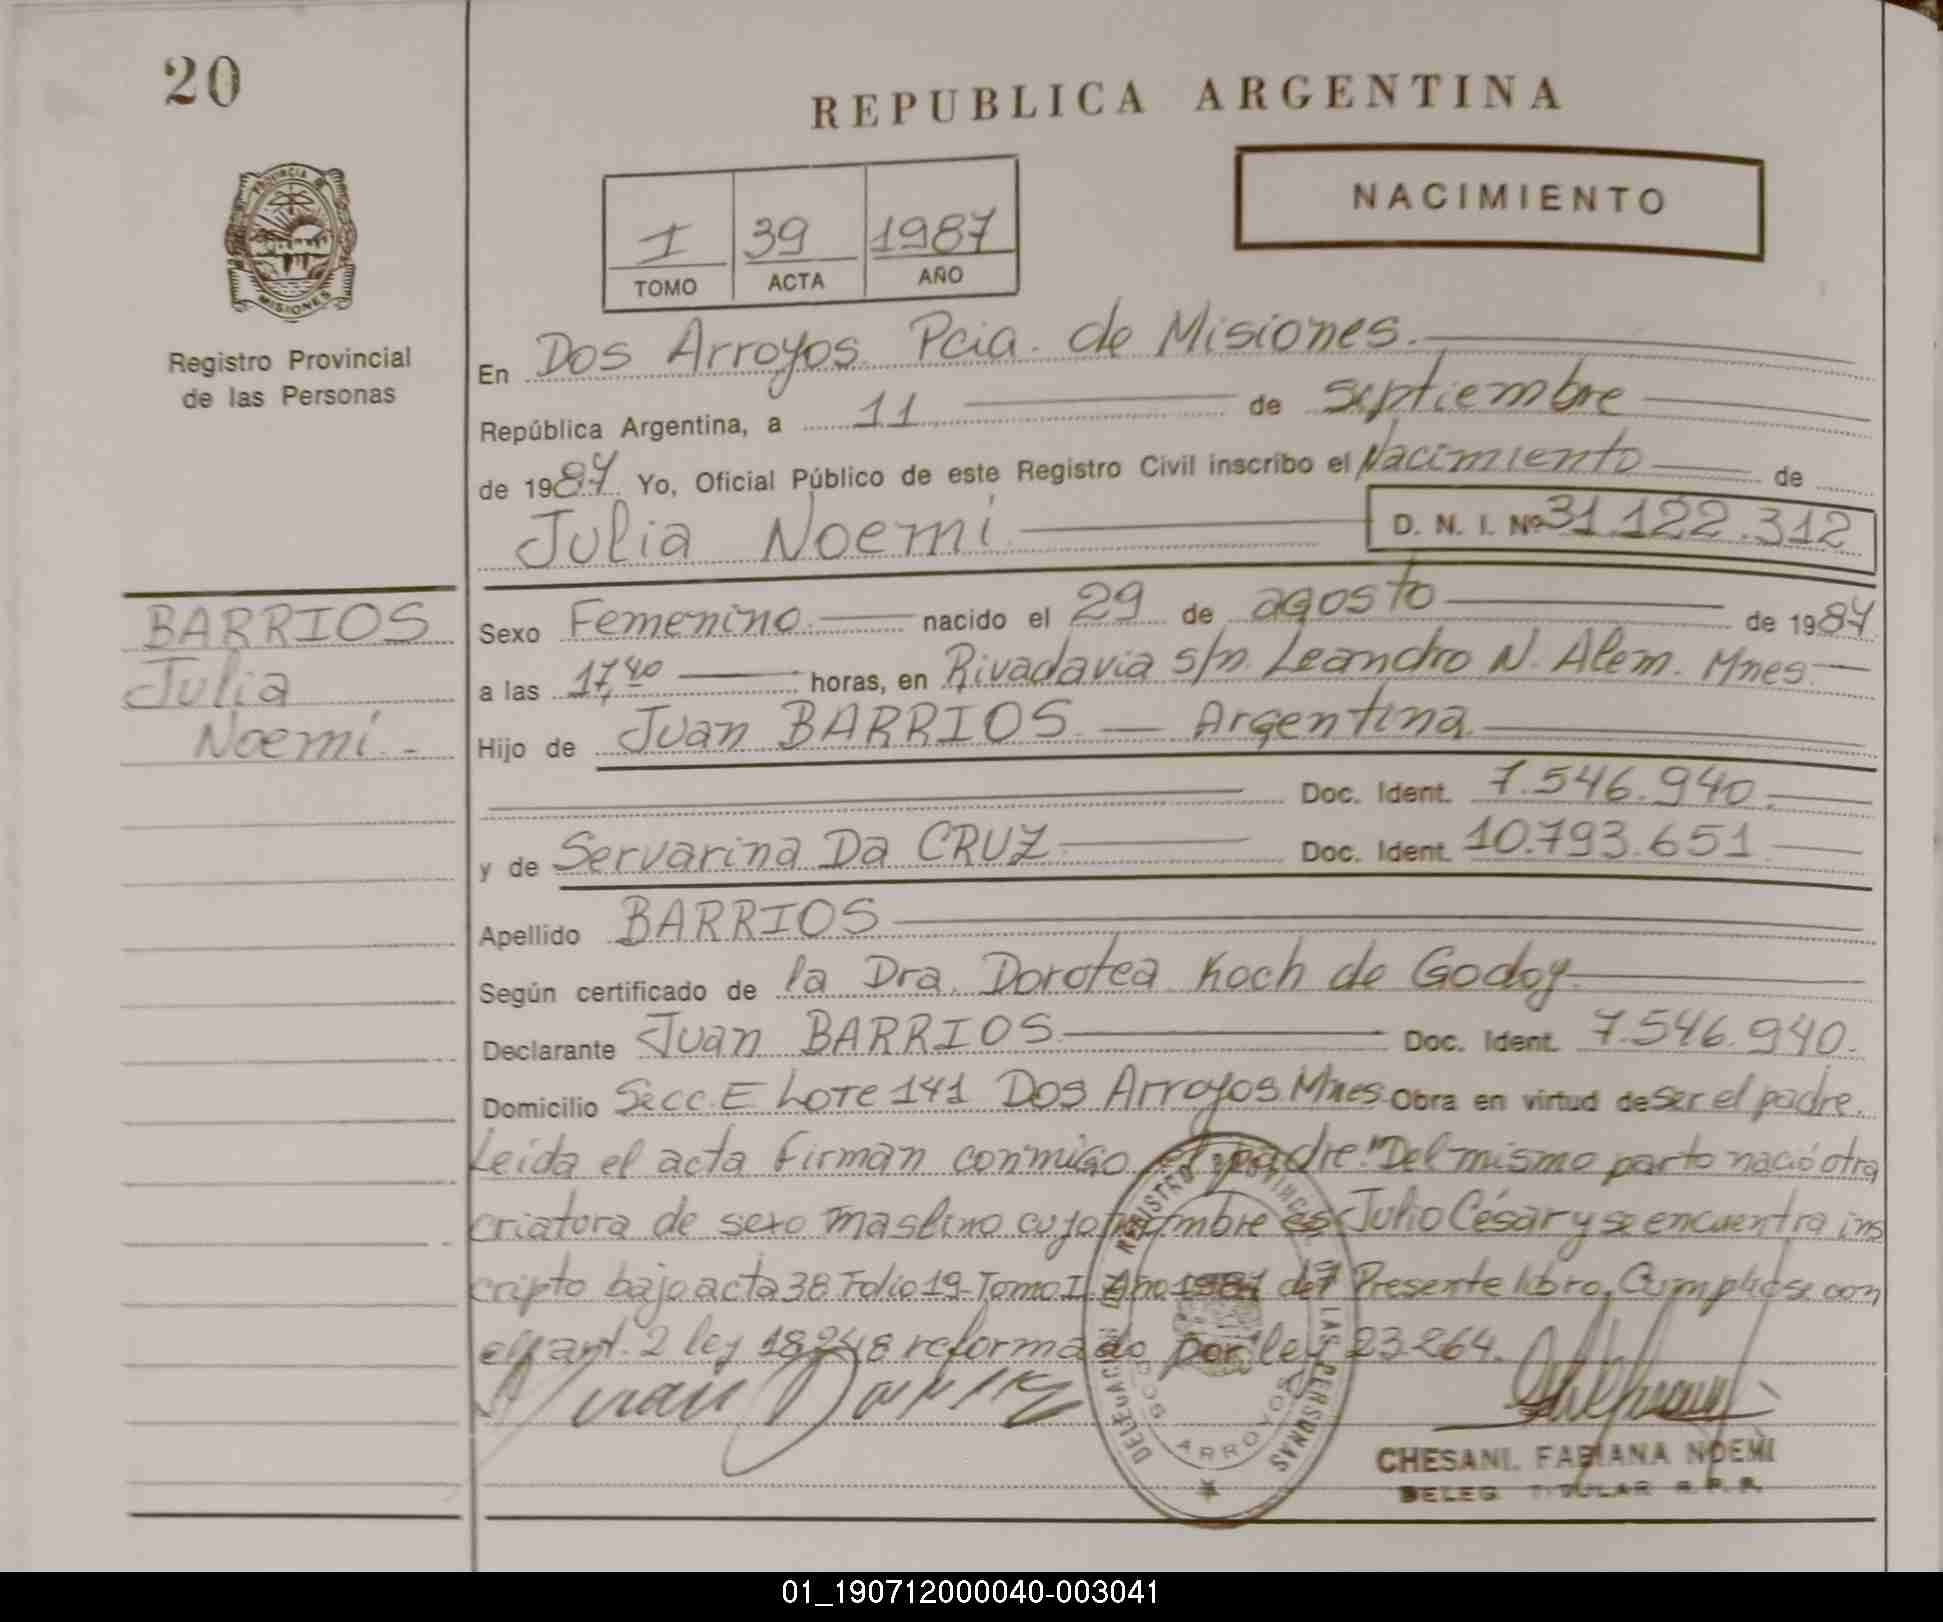 20
REPUBLICA ARGENTINA
NACIMIENTO
PROVINCIA DE
MISIONES
Registro Provincial
de las Personas
I 39 1987
TOMO ACTA AÑO
En Dos Arroyos Pcia. de Misiones.
República Argentina, a 11 de septiembre
de 1987 Yo, Oficial Público de este Registro Civil inscribo el Nacimiento de
Julia Noemí D. N. I. Nº 31.122.312
BARRIOS
Julia
Noemí.-
Sexo Femenino nacido el 29 de agosto de 1987
a las 17,40 horas, en Rivadavia s/n. Leandro N. Alem. Mnes
Hijo de Juan BARRIOS — Argentina
Doc. Ident. 7.546.940
y de Servarina Da CRUZ Doc. Ident. 10.793.651
Apellido BARRIOS
Según certificado de la Dra. Dorotea Koch de Godoy
Declarante Juan BARRIOS Doc. Ident. 7.546.940.
Domicilio Secc. E Lote 141 Dos Arroyos Mnes. Obra en virtud de ser el padre.
Leída el acta Firman conmigo el padre. "Del mismo parto nació otra
criatura de sexo maslino cuyo nombre es Julio César y se encuentra ins
cripto bajo acta 38 Folio 19 - Tomo I. Año 1987 del Presente libro, Cumpliose con
el art. 2 ley 18248 reformado por ley 23264.
Juan Barrios
DELEGACION REGISTRO PROVINCIAL DE LAS PERSONAS
DOS ARROYOS
CHESANI, FABIANA NOEMI
DELEG. TITULAR R.P.P.
01_190712000040-003041